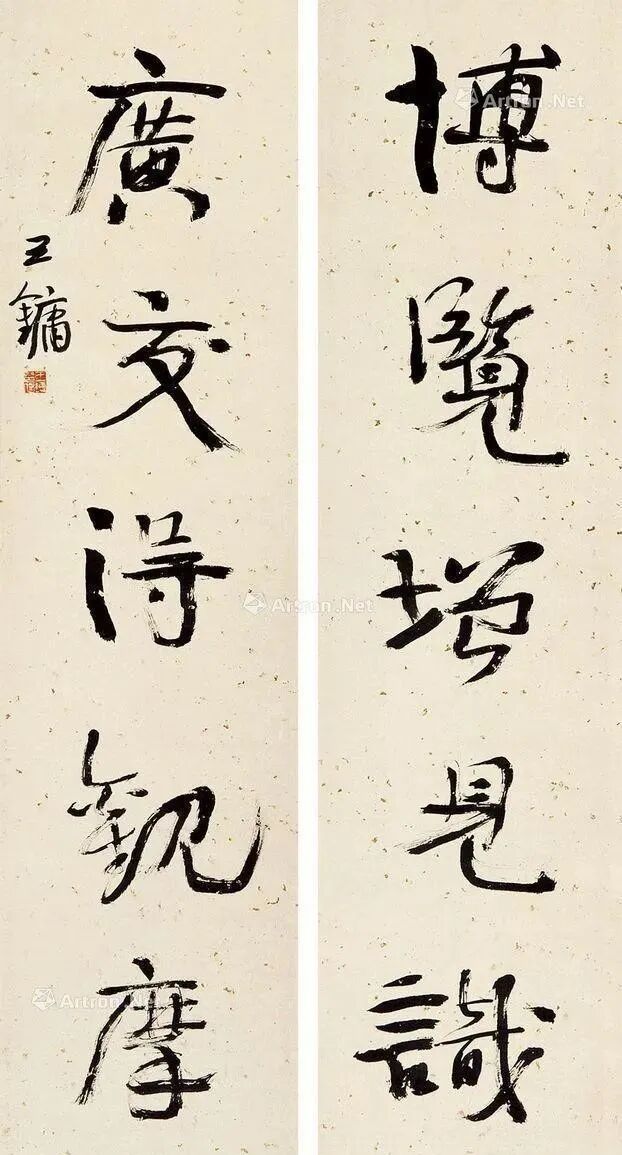 博覽增見識
廣交得觀摩
王鏞
Artron.Net
Artron.Net
Artron.Net